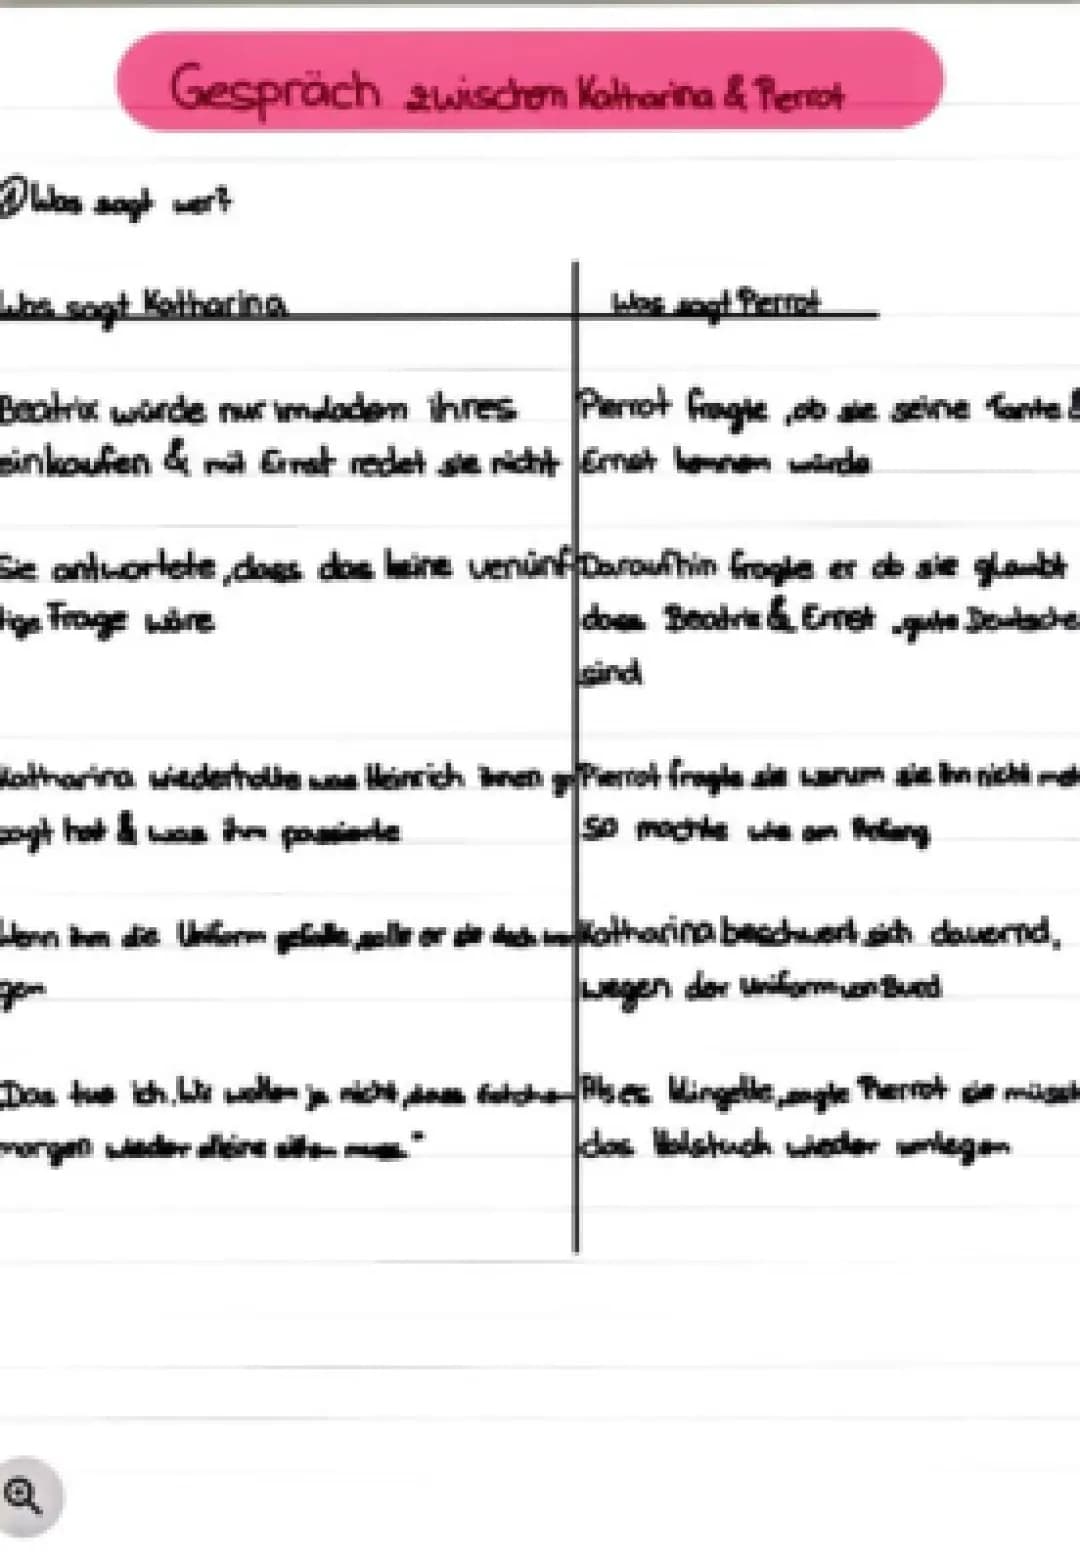 Gespräch zwischen Katharina & Pierrot
① Was sagt wer?
Was sagt Katharina
Was sagt Pierrot
Beatrix würde nur im Laden ihres
einkaufen & mit Ernst redet sie nicht
Pierrot fragte, ob sie seine Tante &
Ernst kennen würde
Sie antwortete, dass das keine venünf
tige Frage wäre
Daraufhin fragte er ob sie glaubt
dass Beatrix & Ernst gute Deutsche
sind
Katharina wiederholte was Heinrich ihnen ge
sagt hat & was ihm passierte
Pierrot fragte sie warum sie ihn nicht
so mochte wie am Anfang
Wenn ihm die Uniform gefalle, solle er sie doch
gen
Katharina beschwert sich dauernd,
wegen der Uniform von Bund
Das tue ich. Wir wollen ja nicht, dass
morgen wieder alleine sitzen muss."
Als es klingelte, sagte Pierrot sie
das Halstuch wieder umlegen